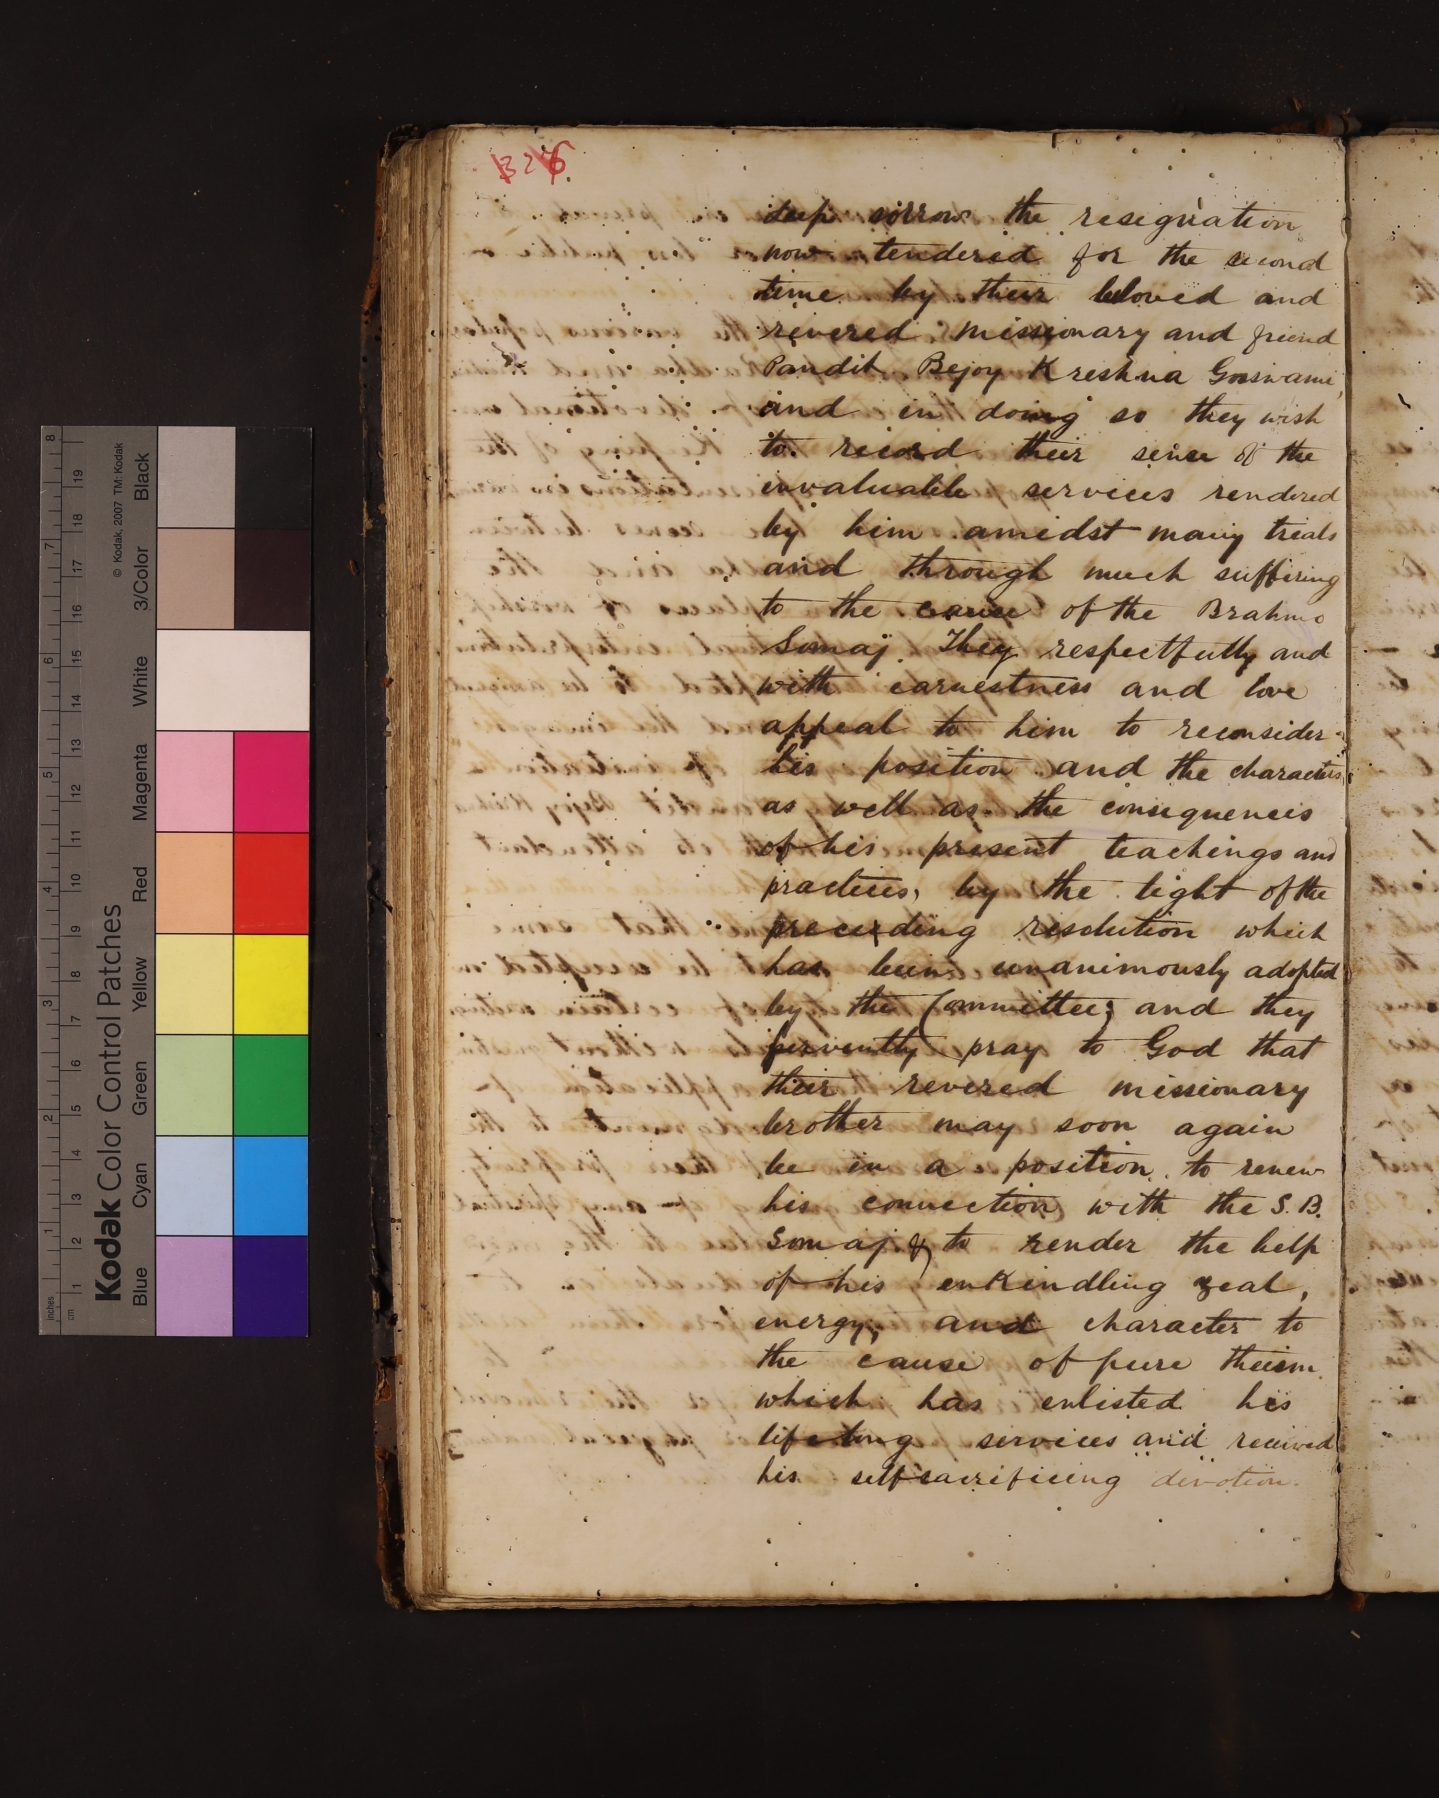 326
deep sorrow the resignation
now tendered for the second
time by their beloved and
revered missionary and friend
Pandit Bejoy Kreshna Gosswami
and in doing so they wish
to record their sense of the
invaluable services rendered
by him amidst many trials
and through much suffering
to the cause of the Brahmo
Somaj. They respectfully and
with earnestness and love
appeal to him to reconsider
his position and the character,
as well as the consequences
of his present teachings and
practices, by the light of the
preceeding resolution which
has been unanimously adopted
by the Committee; and they
fervently pray to God that
their revered missionary
brother may soon again
be in a position to renew
his connection with the S. B.
Somaj & to render the help
of his enkindling zeal,
energy, and character to
the cause of pure theism
which has enlisted his
lifelong services and received
his selfsacrificing devotion.
Kodak Color Control Patches
© Kodak, 2007 TM: Kodak
Blue Cyan Green Yellow Red Magenta White 3/Color Black
inches 1 2 3 4 5 6 7 8
cm 1 2 3 4 5 6 7 8 9 10 11 12 13 14 15 16 17 18 19